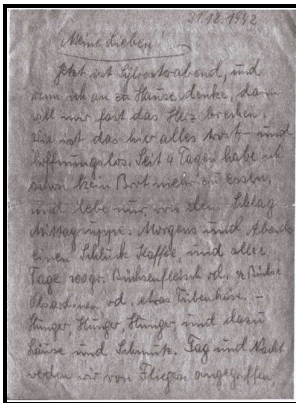 31.12.1942
Meine Lieben!
Jetzt ist Sylvesterabend, und
wenn ich an zu Hause denke, dann
will mir fast das Herz brechen.
Wie ist das hier alles trost- und
hoffnungslos. Seit 4 Tagen habe ich
schon kein Brot mehr zu essen,
und lebe nur von dem Schlag
Mittagsuppe. Morgens und Abends
einen Schluck Kaffee und alle
Tage 100 gr. Büchsenfleisch od. ½ Büchse
Ölsardinen od. etwas Tubenkäse. –
Hunger, Hunger, Hunger und dazu
Läuse und Schmutz. Tag und Nacht
werden wir von Fliegern angegriffen,